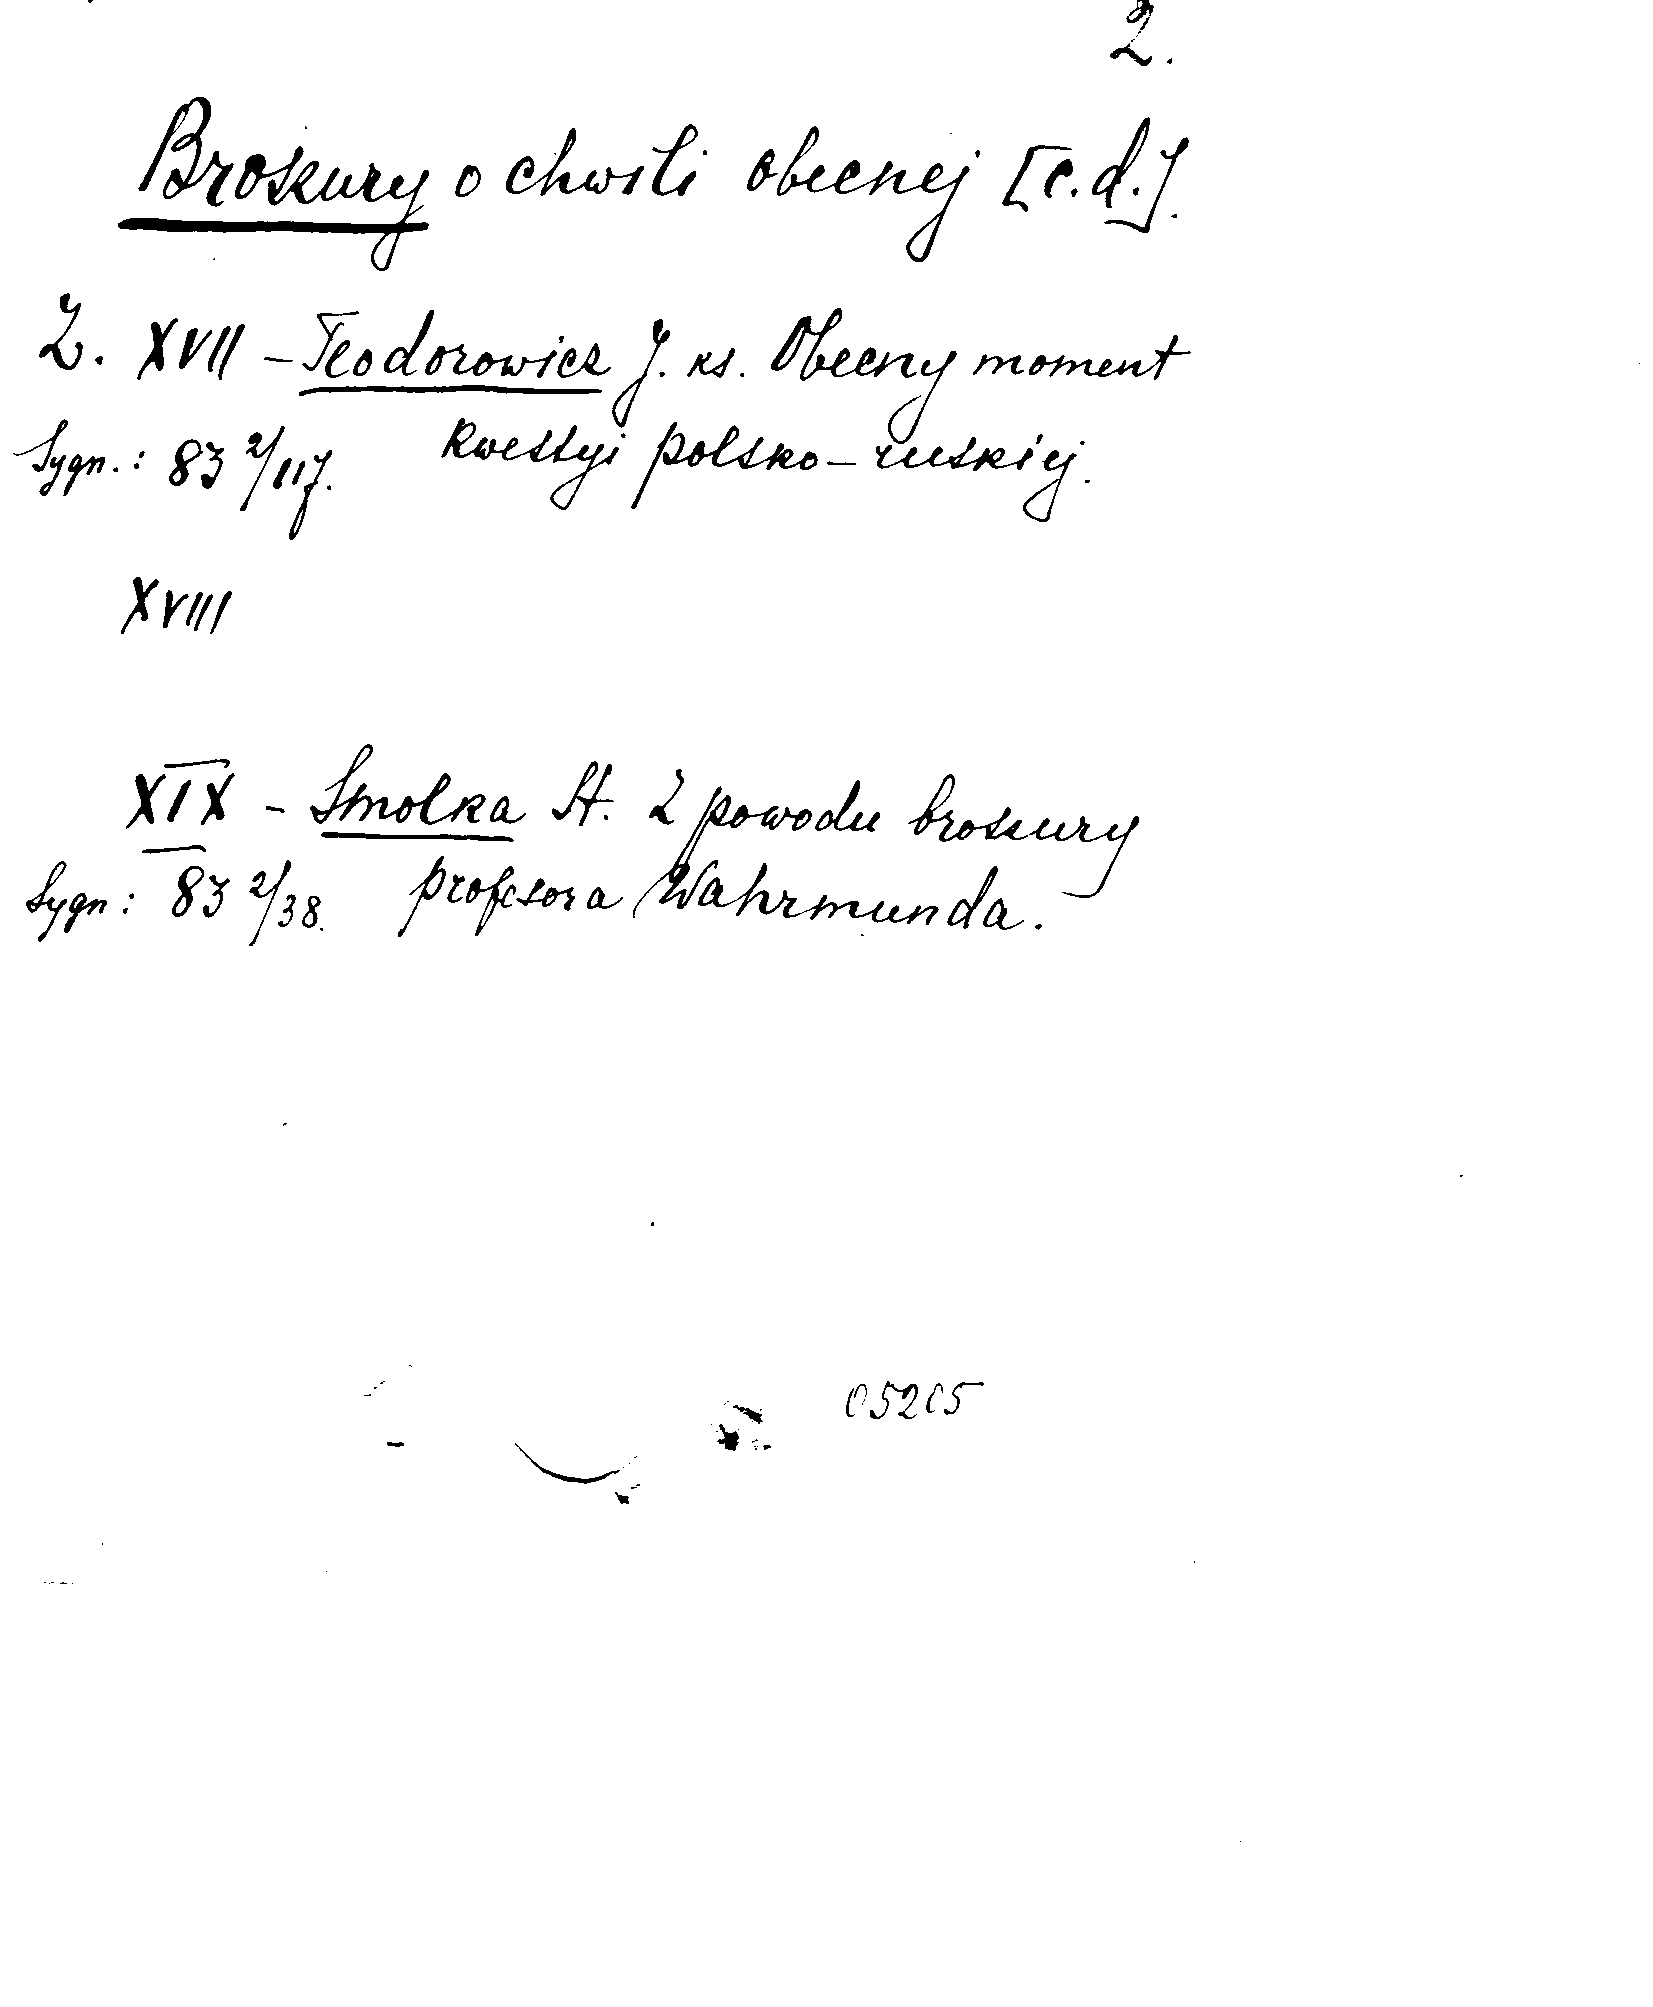 2.
Broszury o chwili obecnej [c.d.].
Z. XVII – Teodorowicz J. ks. Obecny moment
Sygn.: 83 2/117. kwestyi polsko–ruskiej.
XVIII
XIX – Smolka St. Z powodu broszury
Sygn: 83 2/38. profesora Wahrmunda.
05205